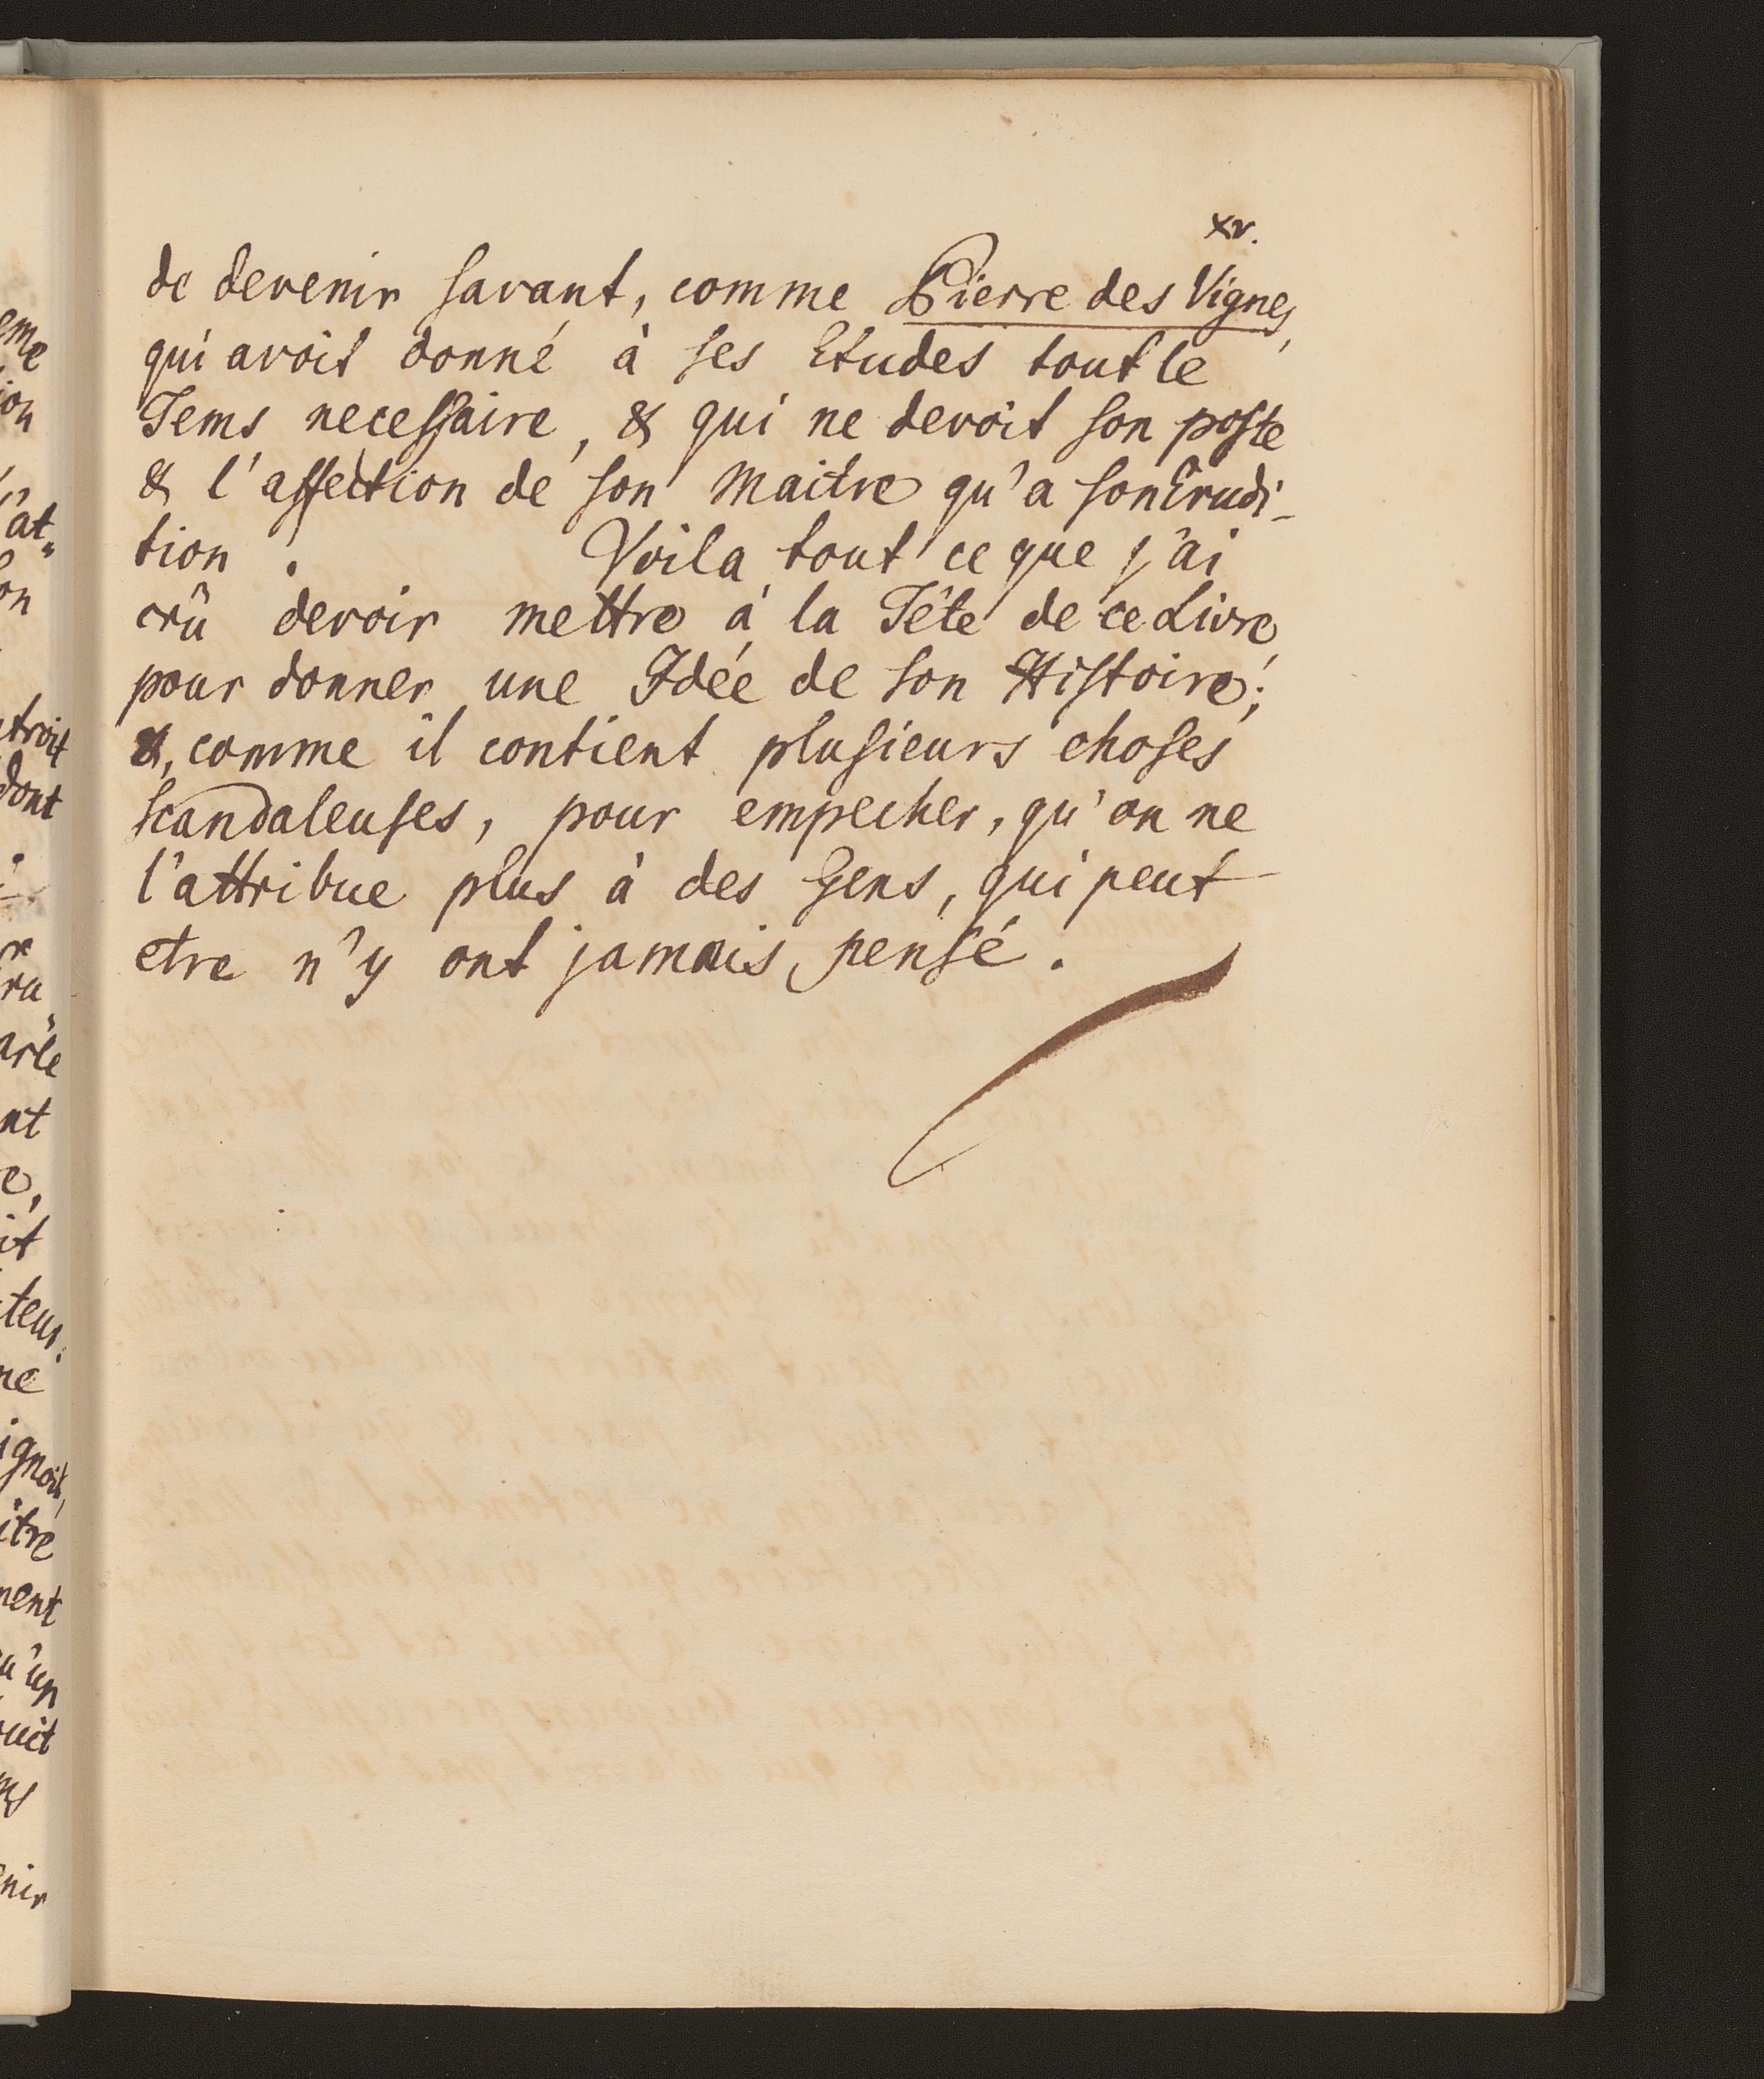 xv.
de devenir savant, comme Pierre des Vignes,
qui avoit donné à ses Etudes tout le
Tems necessaire, & qui ne devoit son poste
& l'affection de son Maitre qu'a son Erudi-
tion. Voila tout ce que j'ai
crû devoir mettre à la Téte de ce Livre
pour donner une Idée de son Histoire;
&, comme il contient plusieurs choses
scandaleuses, pour empecher, qu'on ne
l'attribue plus à des Gens, qui peut
etre n'y ont jamais pensé.